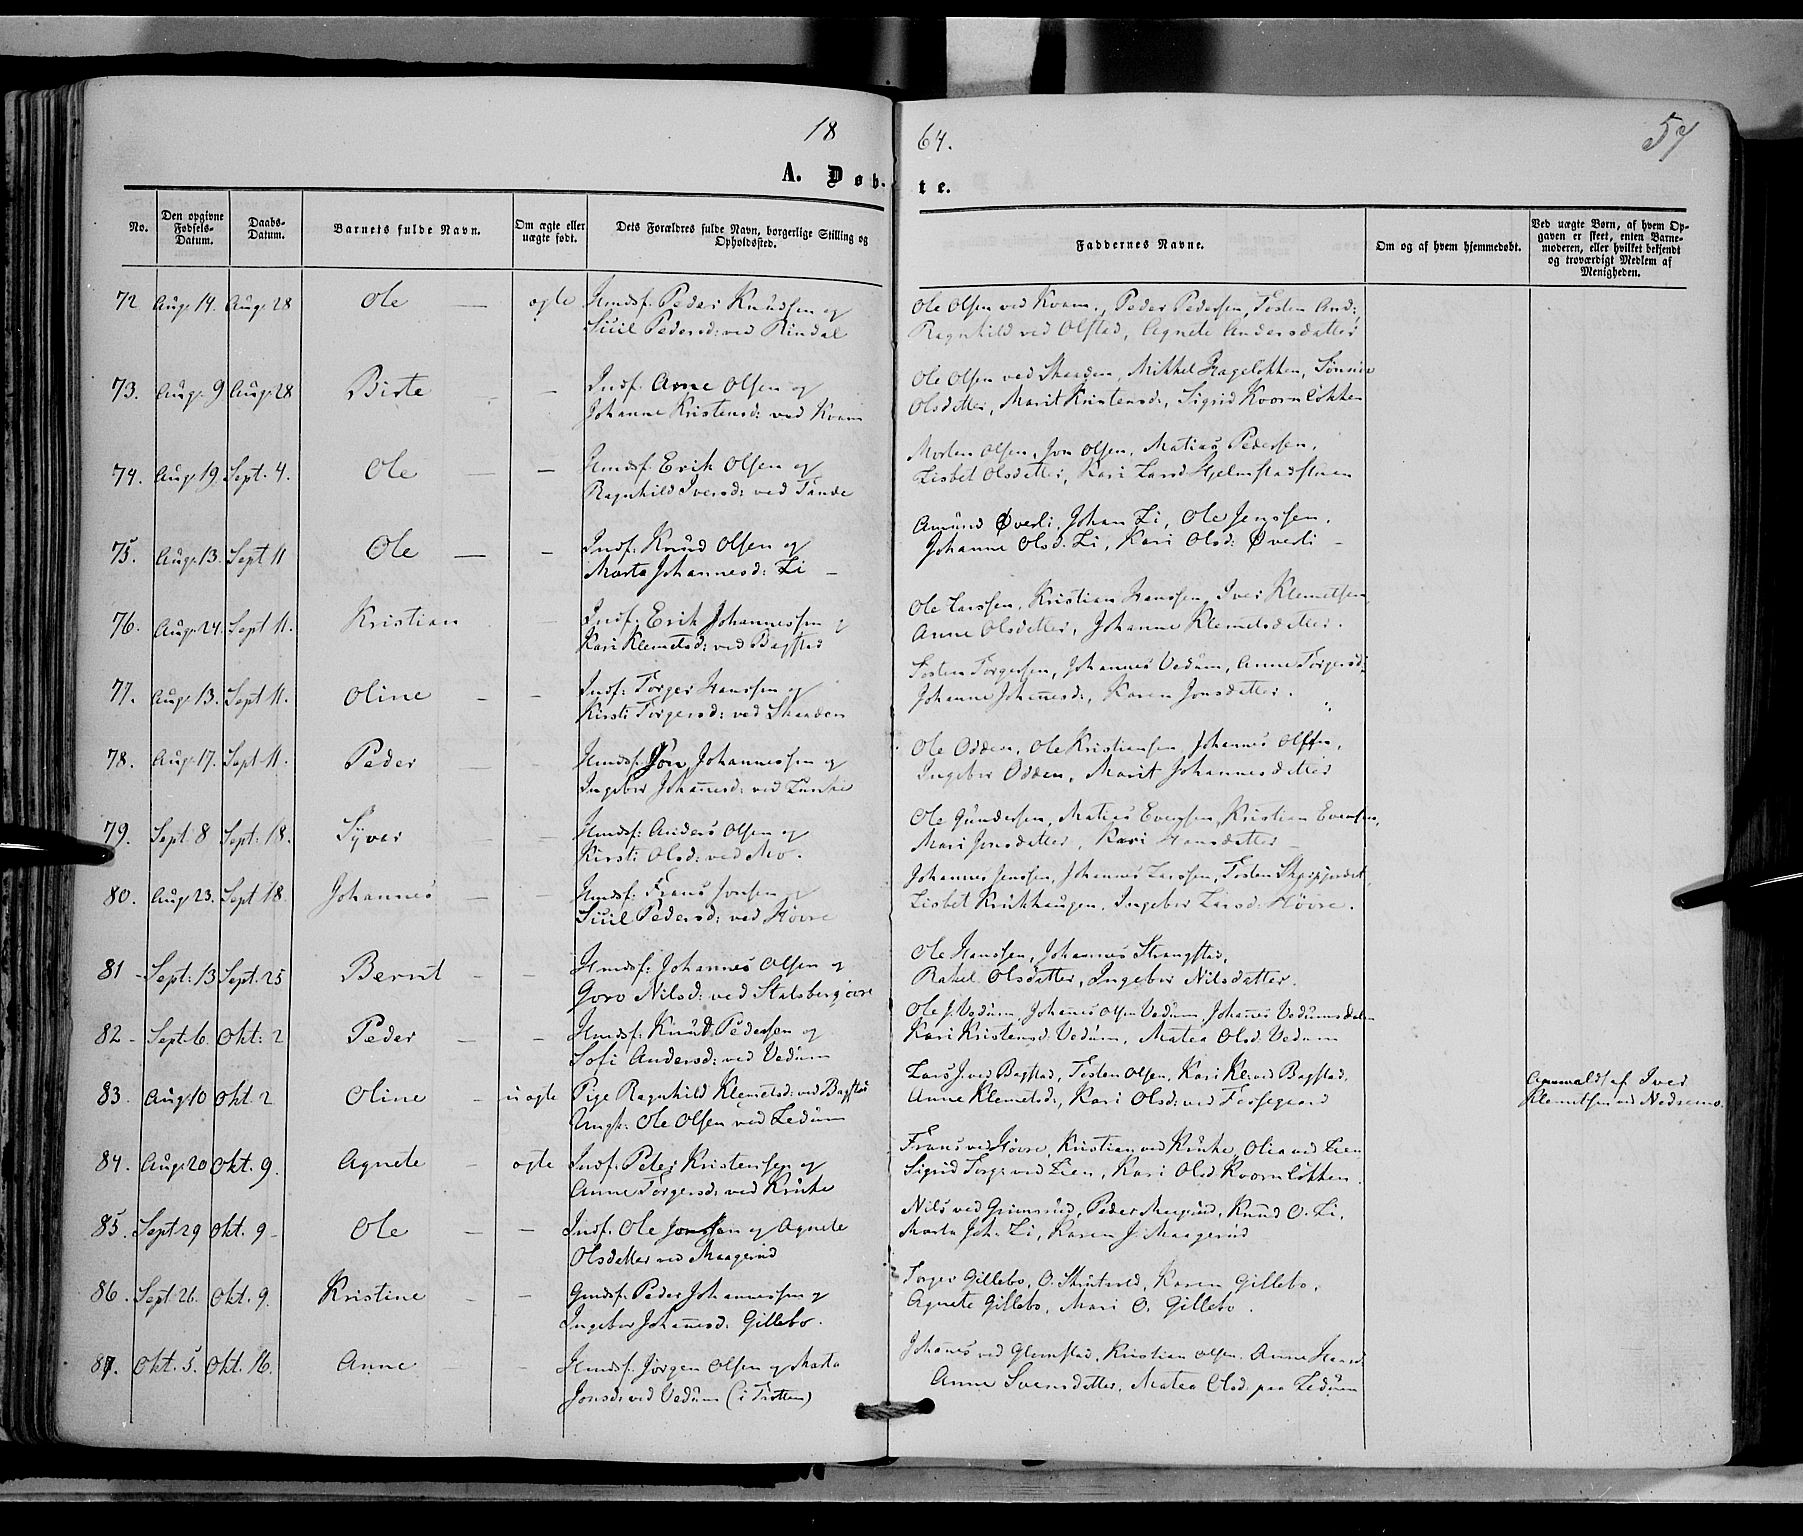 1864.
57
A. Døbte.
No.
Den opgivne Fødsels-Datum.
Daabs-Datum.
Barnets fulde Navn.
Om ægte eller uægte født.
Dets Forældres fulde Navn, borgerlige Stilling og Opholdssted.
Faddernes Navne.
Om og af hvem hjemmedøbt.
Ved uægte Børn, af hvem Opgaven er skeet, enten Barnemoderen, eller hvilket bekjendt og troværdigt Medlem af Menigheden.
72 Aug. 14. Aug. 28 Ole — ægte Hmdsf: Peder Knudsen og
Sicil Pedersd: ved Rindal
Ole Olsen ved Kvam, Peder Pedersen, Tosten And:,
Ragnhild ved Olstad, Agnete Andersdatter
73. Aug. 9 Aug. 28 Birte — Indf: Arne Olsen og
Johanne Kristensd: ved Kvam
Ole Olsen ved Skaaden, Mikkel Hageløkken,
Olsdatter, Marit Kristensd:, Sigrid Kvernløkken
74. Aug. 19 Sept. 4. Ole — — Hmdsf: Erik Olsen og
Ragnhild Iversd: ved Tande
Morten Olsen, Jon Olsen, Matias Pedersen,
Lisbet Olsdatter, Kari Larsd
75. Aug. 13. Sept 11 Ole — — Indf: Knud Olsen og
Marta Johannesd: Li —
Amund Øverli, Johan Li, Ole Jenssen,
Johanne Olsd. Li, Kari Olsd: Øverli —
76. Aug. 24. Sept 11. Kristian — Indf: Erik Johannessen og
Kari Klemetsd: ved Bagstad
Ole Larssen, Kristian Hanssen, Iver Klemetsen,
Anne Olsdatter, Johanne Klemetsdatter.
77. Aug. 13. Sept 11. Oline — — Indf: Torger Hanssen og
Kirsti Torgersd: ved Skaaden
Tosten Torgersen, Johannes Vedum, Anne Torgersd:
Johanne Johannesd:, Karen Jonsdatter.
78. Aug. 17. Sept 11. Peder — — Hmdsf: Jon Johannessen og
Ingebor Johannesd: ved Lunke
Ole Odden, Ole Kristiansen, Johannes Olsen,
Ingebor Odden, Marit Johannesdatter
79. Sept. 8 Sept. 18. Syver — — Hmdsf: Anders Olsen og
Kirsti Olsd: ved Mo.
Ole Gundersen, Matias Evensen, Kristian Evensen,
Mari Jonsdatter, Kari Hansdatter —
80. Aug. 23. Sept 18 Johannes — — Hmdsf: Frans Jonsen og
Sicil Pedersd: ved Høvre
Johannes Jenssen, Johannes Larssen, Tosten
Lisbet Krukhaugen, Ingebor Larsd: Høvre.
81 Sept: 13 Sept. 25 Bernt — — Hmdsf: Johannes Olsen og
Goro Nilsd: ved Stalsberg øvre
Ole Hanssen, Johannes Strangstad,
Rakel Olsdatter, Ingebor Nilsdatter.
82 Sept. 6. Okt: 2 Peder — — Hmdsf: Knud Pedersen og
Sofi Andersd: ved Vedum
Ole J. Vedum, Johannes Olsen Vedum, Johannes Vedumsdalen
Kari Kristensd. Vedum, Matea Olsd. Vedum
83. Aug 10 Okt. 2 Oline — uægte Pige Ragnhild Klemetsd: ved Bagstad
Ungk: Ole Olsen ved Ledum
Lars J. ved Bagstad, Tosten Olsen, Kari Kl. ved Bagstad,
Anne Klemetsd:, Kari Olsd: ved
Anmeldt af Iver
Klemetsen ved Nedremo.
84. Aug. 20 Okt. 9. Agnete — ægte Indf: Peter Kristenssen og
Anne Torgersd: ved Kruke
Frans ved Høvre, Kristian ved Kruke, Olia ved Lien
Sigrid Torg: ved Lien, Kari Olsd Kvernløkken.
85. Sept. 29 Okt. 9 — Ole — — Indf: Ole Jonssen og Agnete
Olsdatter ved Maagerud
Nils ved Grimsrud, Peder Maagerud, Knud O. Li,
Marta Joh. Li, Karen J. Maagerud
86. Sept. 26. Okt. 9. Kristine — — Gmdsf: Peder Johannessen og
Ingebor Johannesd: Gillebo.
Torger Gillebo, O. Skutvold, Karen Gillebo,
Agnete Gillebo, Mari O. Gillebo.
87. Okt. 5. Okt. 16. Anne — — Hmdsf: Jørgen Olsen og Marta
Jonsd: ved Vedum (i Trotten)
Johannes ved Glemstad, Kristian Olsen, Anne Hansd
Anne Svensdatter, Matea Olsd. paa Ledum